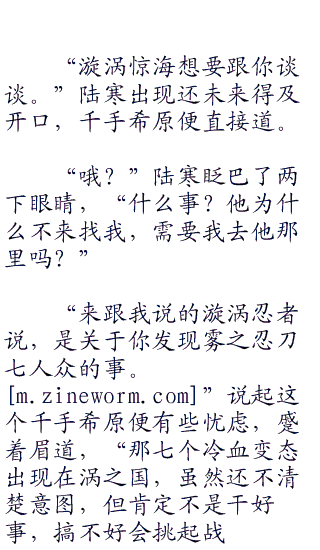 “漩涡惊海想要跟你谈
谈。”陆寒出现还未来得及
开口，千手希原便直接道。
“哦？”陆寒眨巴了两
下眼睛，“什么事？他为什
么不来找我，需要我去他那
里吗？”
“来跟我说的漩涡忍者
说，是关于你发现雾之忍刀
七人众的事。
[m.zineworm.com]”说起这
个千手希原便有些忧虑，蹙
着眉道，“那七个冷血变态
出现在涡之国，虽然还不清
楚意图，但肯定不是干好
事，搞不好会挑起战